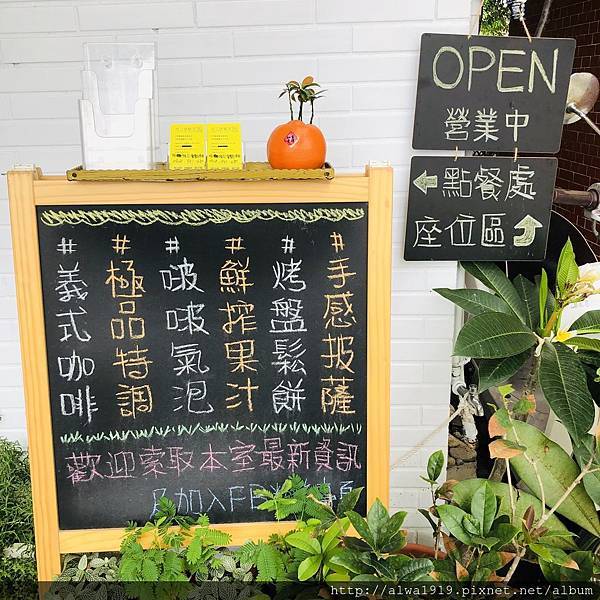 OPEN
營業中
點餐處
座位區
#義式咖啡
#極品特調
#啵啵氣泡
#鮮搾果汁
#烤盤鬆餅
#手感披薩
歡迎索取本室最新資訊
及加入FB
alwa1919 @ http://www.pixnet.net/album